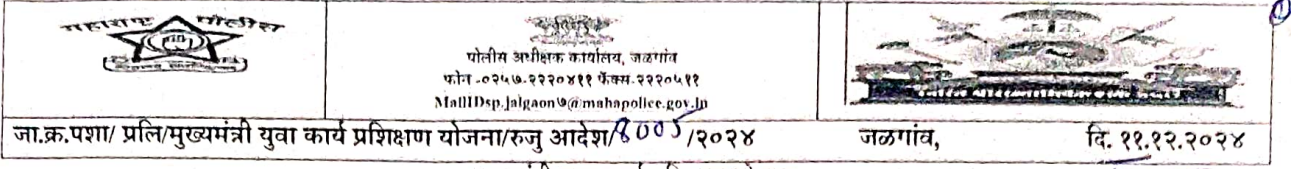 महाराष्ट्र पोलीस
पोलीस अधीक्षक कार्यालय, जळगांव
फोन -०२५७-२२२०४११ फॅक्स-२२२०५११
MailIDsp.jalgaon७@mahapolice.gov.in
जा.क्र.पशा/ प्रलि/मुख्यमंत्री युवा कार्य प्रशिक्षण योजना/रुजु आदेश/ /२०२४ जळगांव, दि. ११.१२.२०२४